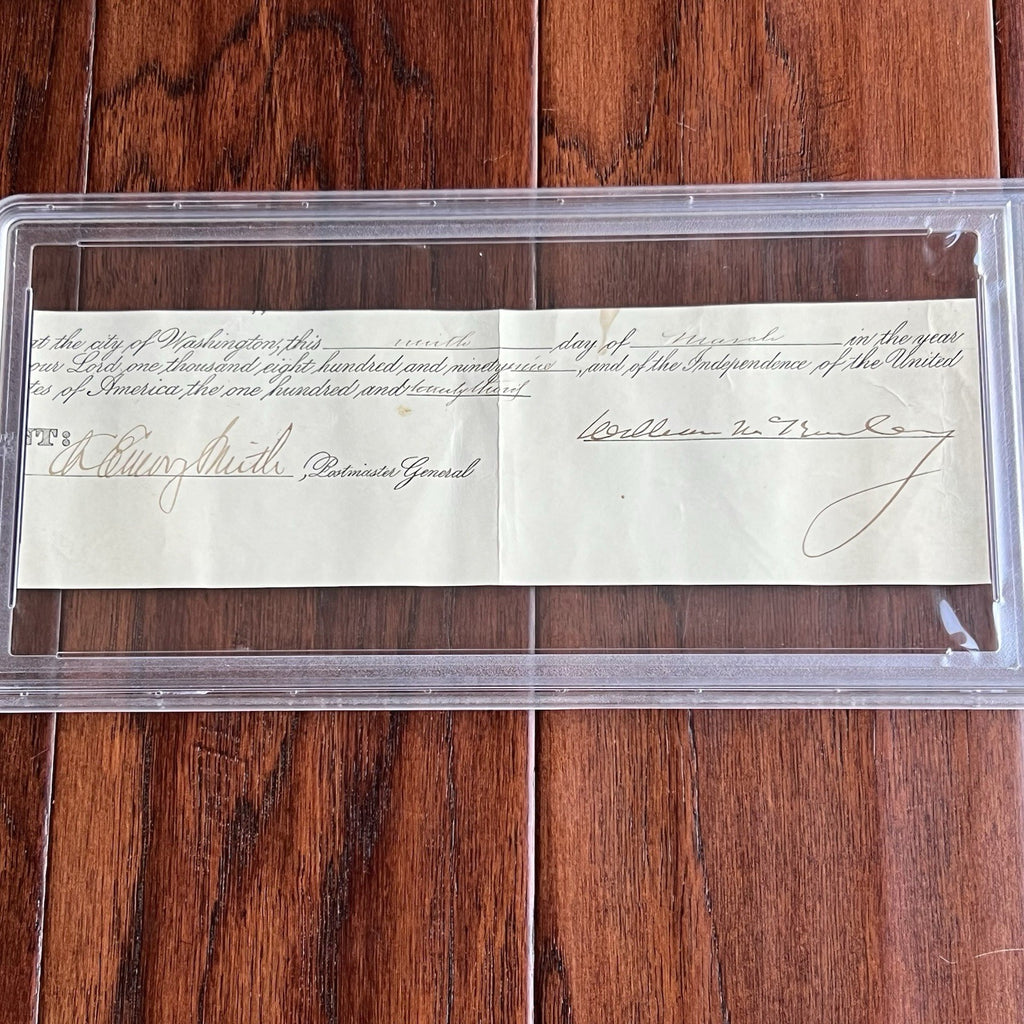 at the city of Washington, this ninth day of March in the year
our Lord one thousand eight hundred and ninety nine, and of the Independence of the United
tes of America the one hundred and twenty third
NT:
William McKinley
Ch Emory Smith, Postmaster General